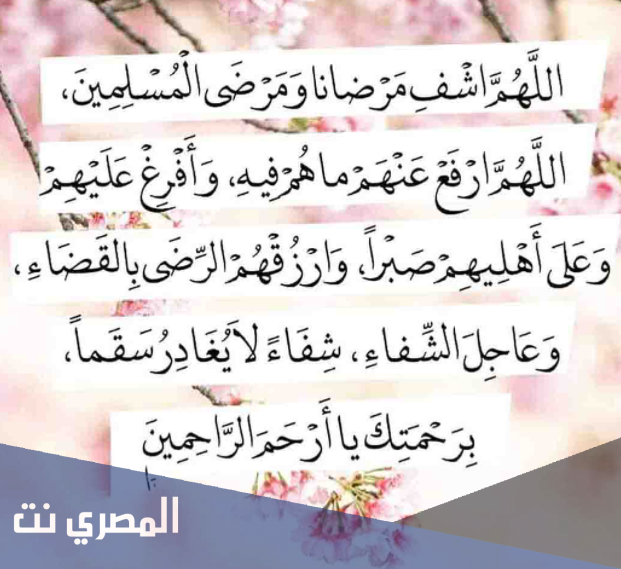 اللَّهُمَّ اشْفِ مَرْضانا وَمَرْضَى الْمُسْلِمِينَ،
اللَّهُمَّ ارْفَعْ عَنْهَمْ ما هُمْ فِيهِ، وَأَفْرِغْ عَلَيْهِمْ
وَعَلَى أَهْلِيهِمْ صَبْراً، وَارْزُقْهُمْ الرِّضَى بِالقَضَاءِ،
وَعَاجِلَ الشِّفاءِ، شِفَاءً لاَ يُغَادِرُ سَقَماً،
بِرَحْمَتِكَ يا أَرْحَمَ الرَّاحِمِينَ
المصري نت